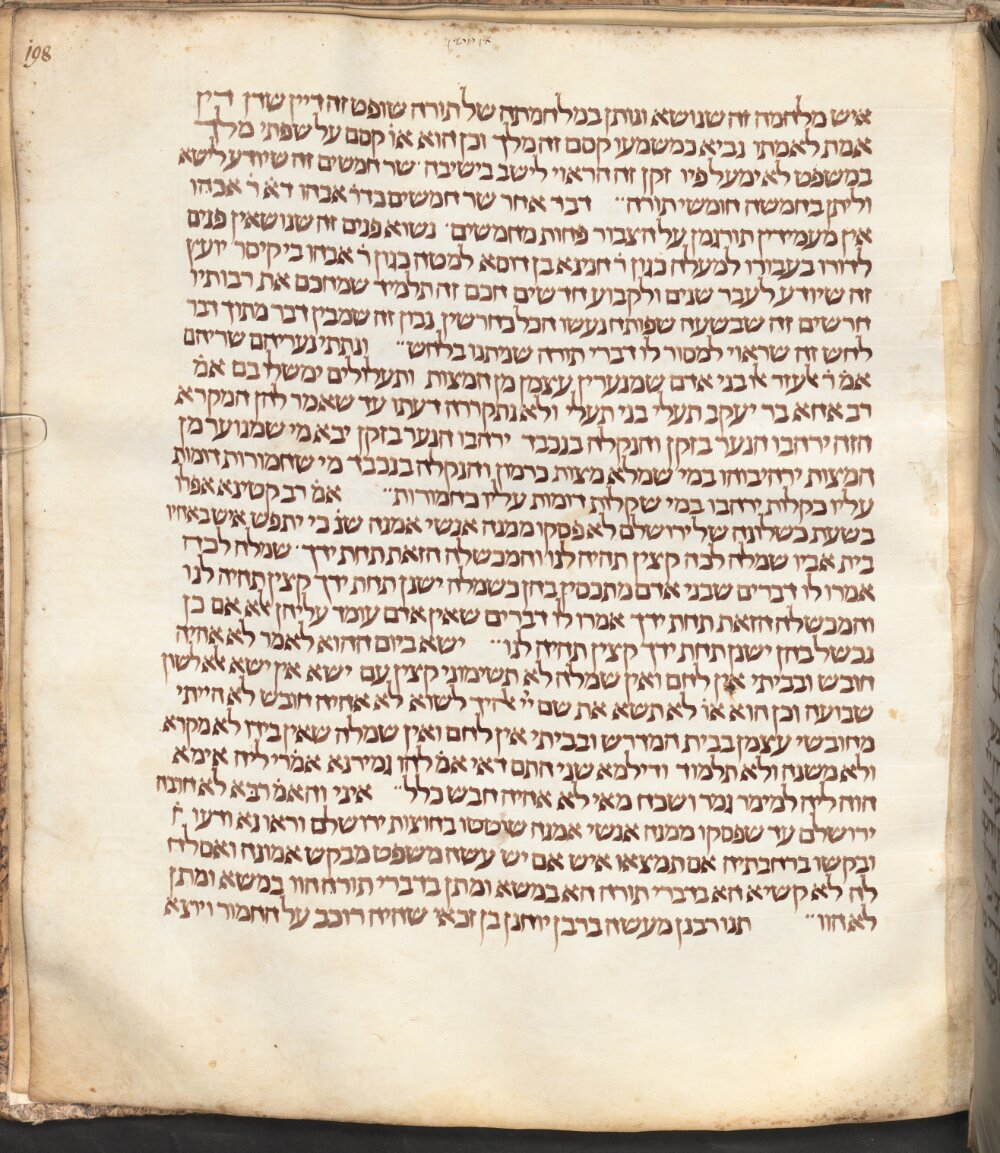 198
אין דורשין
איש מלחמה זה שנושא ונותן במלחמתה של תורה שופט זה דיין שדן דין
אמת לאמתו נביא כמשמעו קסם זה מלך וכן הוא או׳ קסם על שפתי מלך
במשפט לא ימעל פיו זקן זה הראוי לישב בישיבה שר חמשים זה שיודע לישא
וליתן בחמשה חומשי תורה דבר אחר שר חמשים כדר׳ אבהו דא׳ ר׳ אבהו
אין מעמידין תורגמן על הצבור פחות מחמשים נשוא פנים זה שנושאין פנים
לדורו בעבורו למעלה כגון ר׳ חנינא בן דוסא למטה כגון ר׳ אבהו בי קיסר יועץ
זה שיודע לעבר שנים ולקבוע חדשים חכם זה תלמיד שמחכם את רבותיו
חרשים זה שבשעה שפותח נעשו הכל כחרשין נבון זה שמבין דבר מתוך דבר
לחש זה שראוי למסור לו דברי תורה שניתנו בלחש ונתתי נעריהם שריהם
אמ׳ ר׳ אלעזר אלו בני אדם שמנערין עצמן מן המצות ותעלולים ימשלו בם אמ׳
רב אחא בר יעקב תעלי בני תעלי ולא נתקררה דעתו עד שאמר להן המקרא
הזה ירהבו הנער בזקן והנקלה בנכבד ירהבו הנער בזקן יבא מי שמנוער מן
המצות ירהיבוהו במי שמלא מצות כרמון והנקלה בנכבד מי שחמורות דומות
עליו כקלות ירהבו במי שקלות דומות עליו כחמורות אמ׳ רב קטינא אפלו
בשעת כשלונה של ירושלם לא פסקו ממנה אנשי אמנה שנ׳ כי יתפש איש באחיו
בית אביו שמלה לכה קצין תהיה לנו והמכשלה הזאת תחת ידך שמלה לכה
אמרו לו דברים שבני אדם מתכסין בהן כשמלה ישנן תחת ידך קצין תהיה לנו
והמכשלה הזאת תחת ידך אמרו לו דברים שאין אדם עומד עליהן אלא אם כן
נכשל בהן ישנן תחת ידך קצין תהיה לנו ישא ביום ההוא לאמר לא אהיה
חובש ובביתי אין לחם ואין שמלה לא תשימוני קצין עם ישא אין ישא אלא לשון
שבועה וכן הוא או׳ לא תשא את שם יי׳ אלהיך לשוא לא אהיה חובש לא הייתי
מחובשי עצמן בבית המדרש ובביתי אין לחם ואין שמלה שאין בידו לא מקרא
ולא משנה ולא תלמוד ודילמא שני התם דאי אמ׳ להו גמירנא אמ׳רי ליה אימא
הוה ליה למימר גמר ושכח מאי לא אהיה חבש כלל איני והאמ׳ רבא לא חרבה
ירושלם עד שפסקו ממנה אנשי אמנה שוטטו בחוצות ירושלם וראו נא ודעו
ובקשו ברחבתיה אם תמצאו איש אם יש עשה משפט מבקש אמונה ואסלח
לה לא קשיא הא בדברי תורה הא במשא ומתן בדברי תורה הוו במשא ומתן
לא הוו תנו רבנן מעשה ברבן יוחנן בן זכאי שהיה רוכב על החמור ויוצא